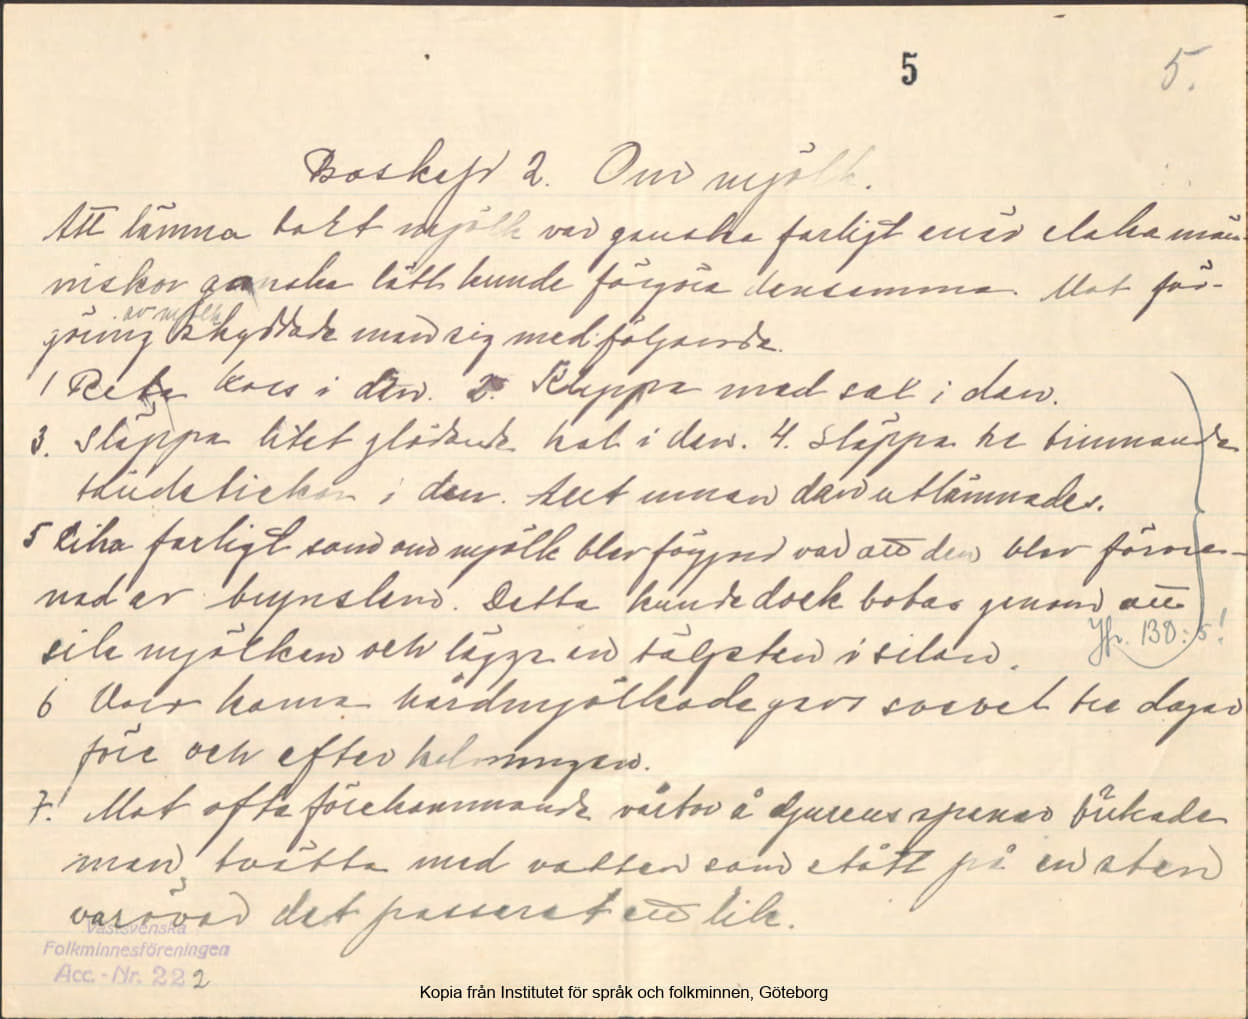 5
5.
Boskap 2. Om mjölk.
Att lämna bort mjölk var ganska farligt enär elaka män-
niskor ganska lätt kunde förgöra densamma. Mot för-
av mjölk
göring skyddade man sig med följande.
1 Reta kors i den. 2. Kleppa med sax i den.
3. Släppa litet glödande kol i den. 4. Släppa tre brinnande
tändstickor i den. Allt innan den utlämnades.
5 Lika farligt som om mjölk blev förgjord var att den blev förore-
nad av brynslem. Detta kunde dock botas genom att
sila mjölken och lägga en täljsten i silen.
Jfr. 130:5!
6 Voro korna hårdmjölkade gavs svavel tre dagar
före och efter kalvningen.
7. Mot ofta förekommande vårtor å djurens spenar brukade
man tvätta med vatten som stått på en sten
varöver det passerat ett lik.
Västsvenska
Folkminnesföreningen
Acc. - Nr. 222
Kopia från Institutet för språk och folkminnen, Göteborg